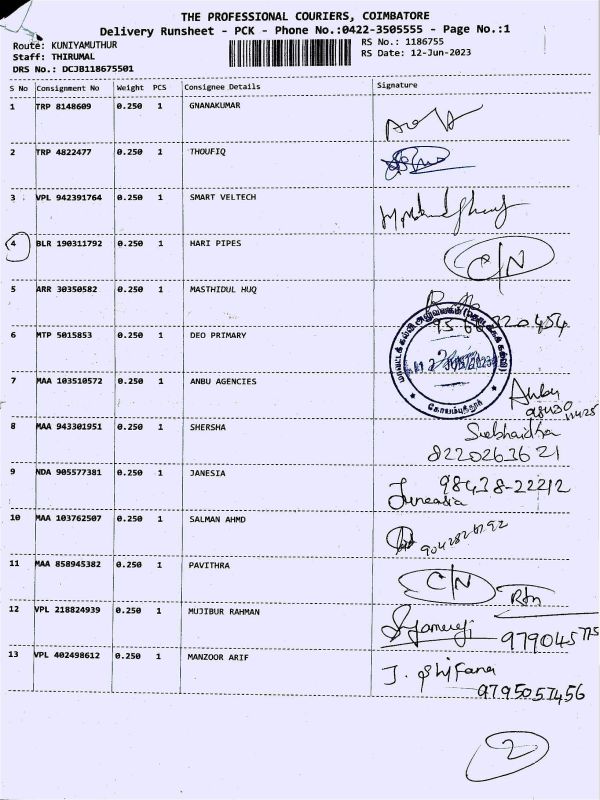 THE PROFESSIONAL COURIERS, COIMBATORE
Delivery Runsheet - PCK - Phone No.:0422-3505555 - Page No.:1
Route: KUNIYAMUTHUR RS No.: 1186755
Staff: THIRUMAL RS Date: 12-Jun-2023
DRS No.: DCJB118675501
S No Consignment No Weight PCS Consignee Details Signature
1 TRP 8148609 0.250 1 GNANAKUMAR
2 TRP 4822477 0.250 1 THOUFIQ
3 VPL 942391764 0.250 1 SMART VELTECH
4 BLR 190311792 0.250 1 HARI PIPES C/N
5 ARR 30350582 0.250 1 MASTHIDUL HUQ
6 MTP 5015853 0.250 1 DEO PRIMARY
கோயம்புத்தூர்
7 MAA 103510572 0.250 1 ANBU AGENCIES Anbu
8 MAA 943301951 0.250 1 SHERSHA
8220263621
9 NDA 905577381 0.250 1 JANESIA 98438-22212
10 MAA 103762507 0.250 1 SALMAN AHMD
11 MAA 858945382 0.250 1 PAVITHRA C/N
Rtn
12 VPL 218824939 0.250 1 MUJIBUR RAHMAN
13 VPL 402498612 0.250 1 MANZOOR ARIF J. Shifana
9795057456
2